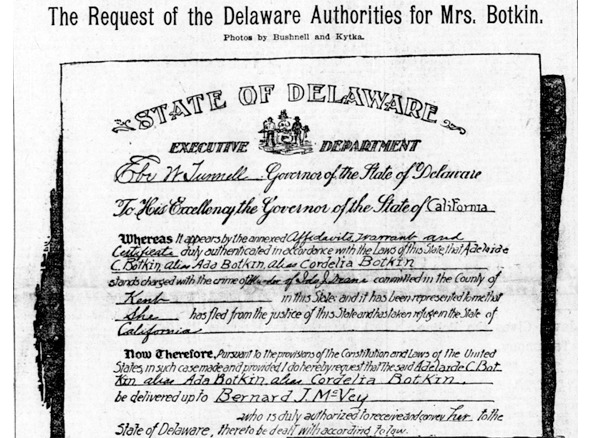 The Request of the Delaware Authorities for Mrs. Botkin.
Photos by Bushnell and Kytka.
STATE OF DELAWARE
EXECUTIVE DEPARTMENT
Ebe W Tunnell Governor of the State of Delaware
To His Excellency, the Governor of the State of California
Whereas It appears by the annexed Affidavits, warrant and
Certificate duly authenticated in accordance with the Laws of this State, that Adelaide
C. Botkin, alias Ada Botkin, alias Cordelia Botkin
stands charged with the crime of Murder of Ida J. Deane committed in the County of
Kent in this State: and it has been represented to me that
She has fled from the justice of this State and has taken refuge in the State of
California
Now Therefore, Pursuant to the provisions of the Constitution and Laws of the United
States, in such case made and provided, I do hereby request that the said Adelaide C. Bot
kin alias Ada Botkin, alias Cordelia Botkin
be delivered up to Bernard J. McVey
who is duly authorized to receive and convey her to the
State of Delaware, there to be dealt with according to law.